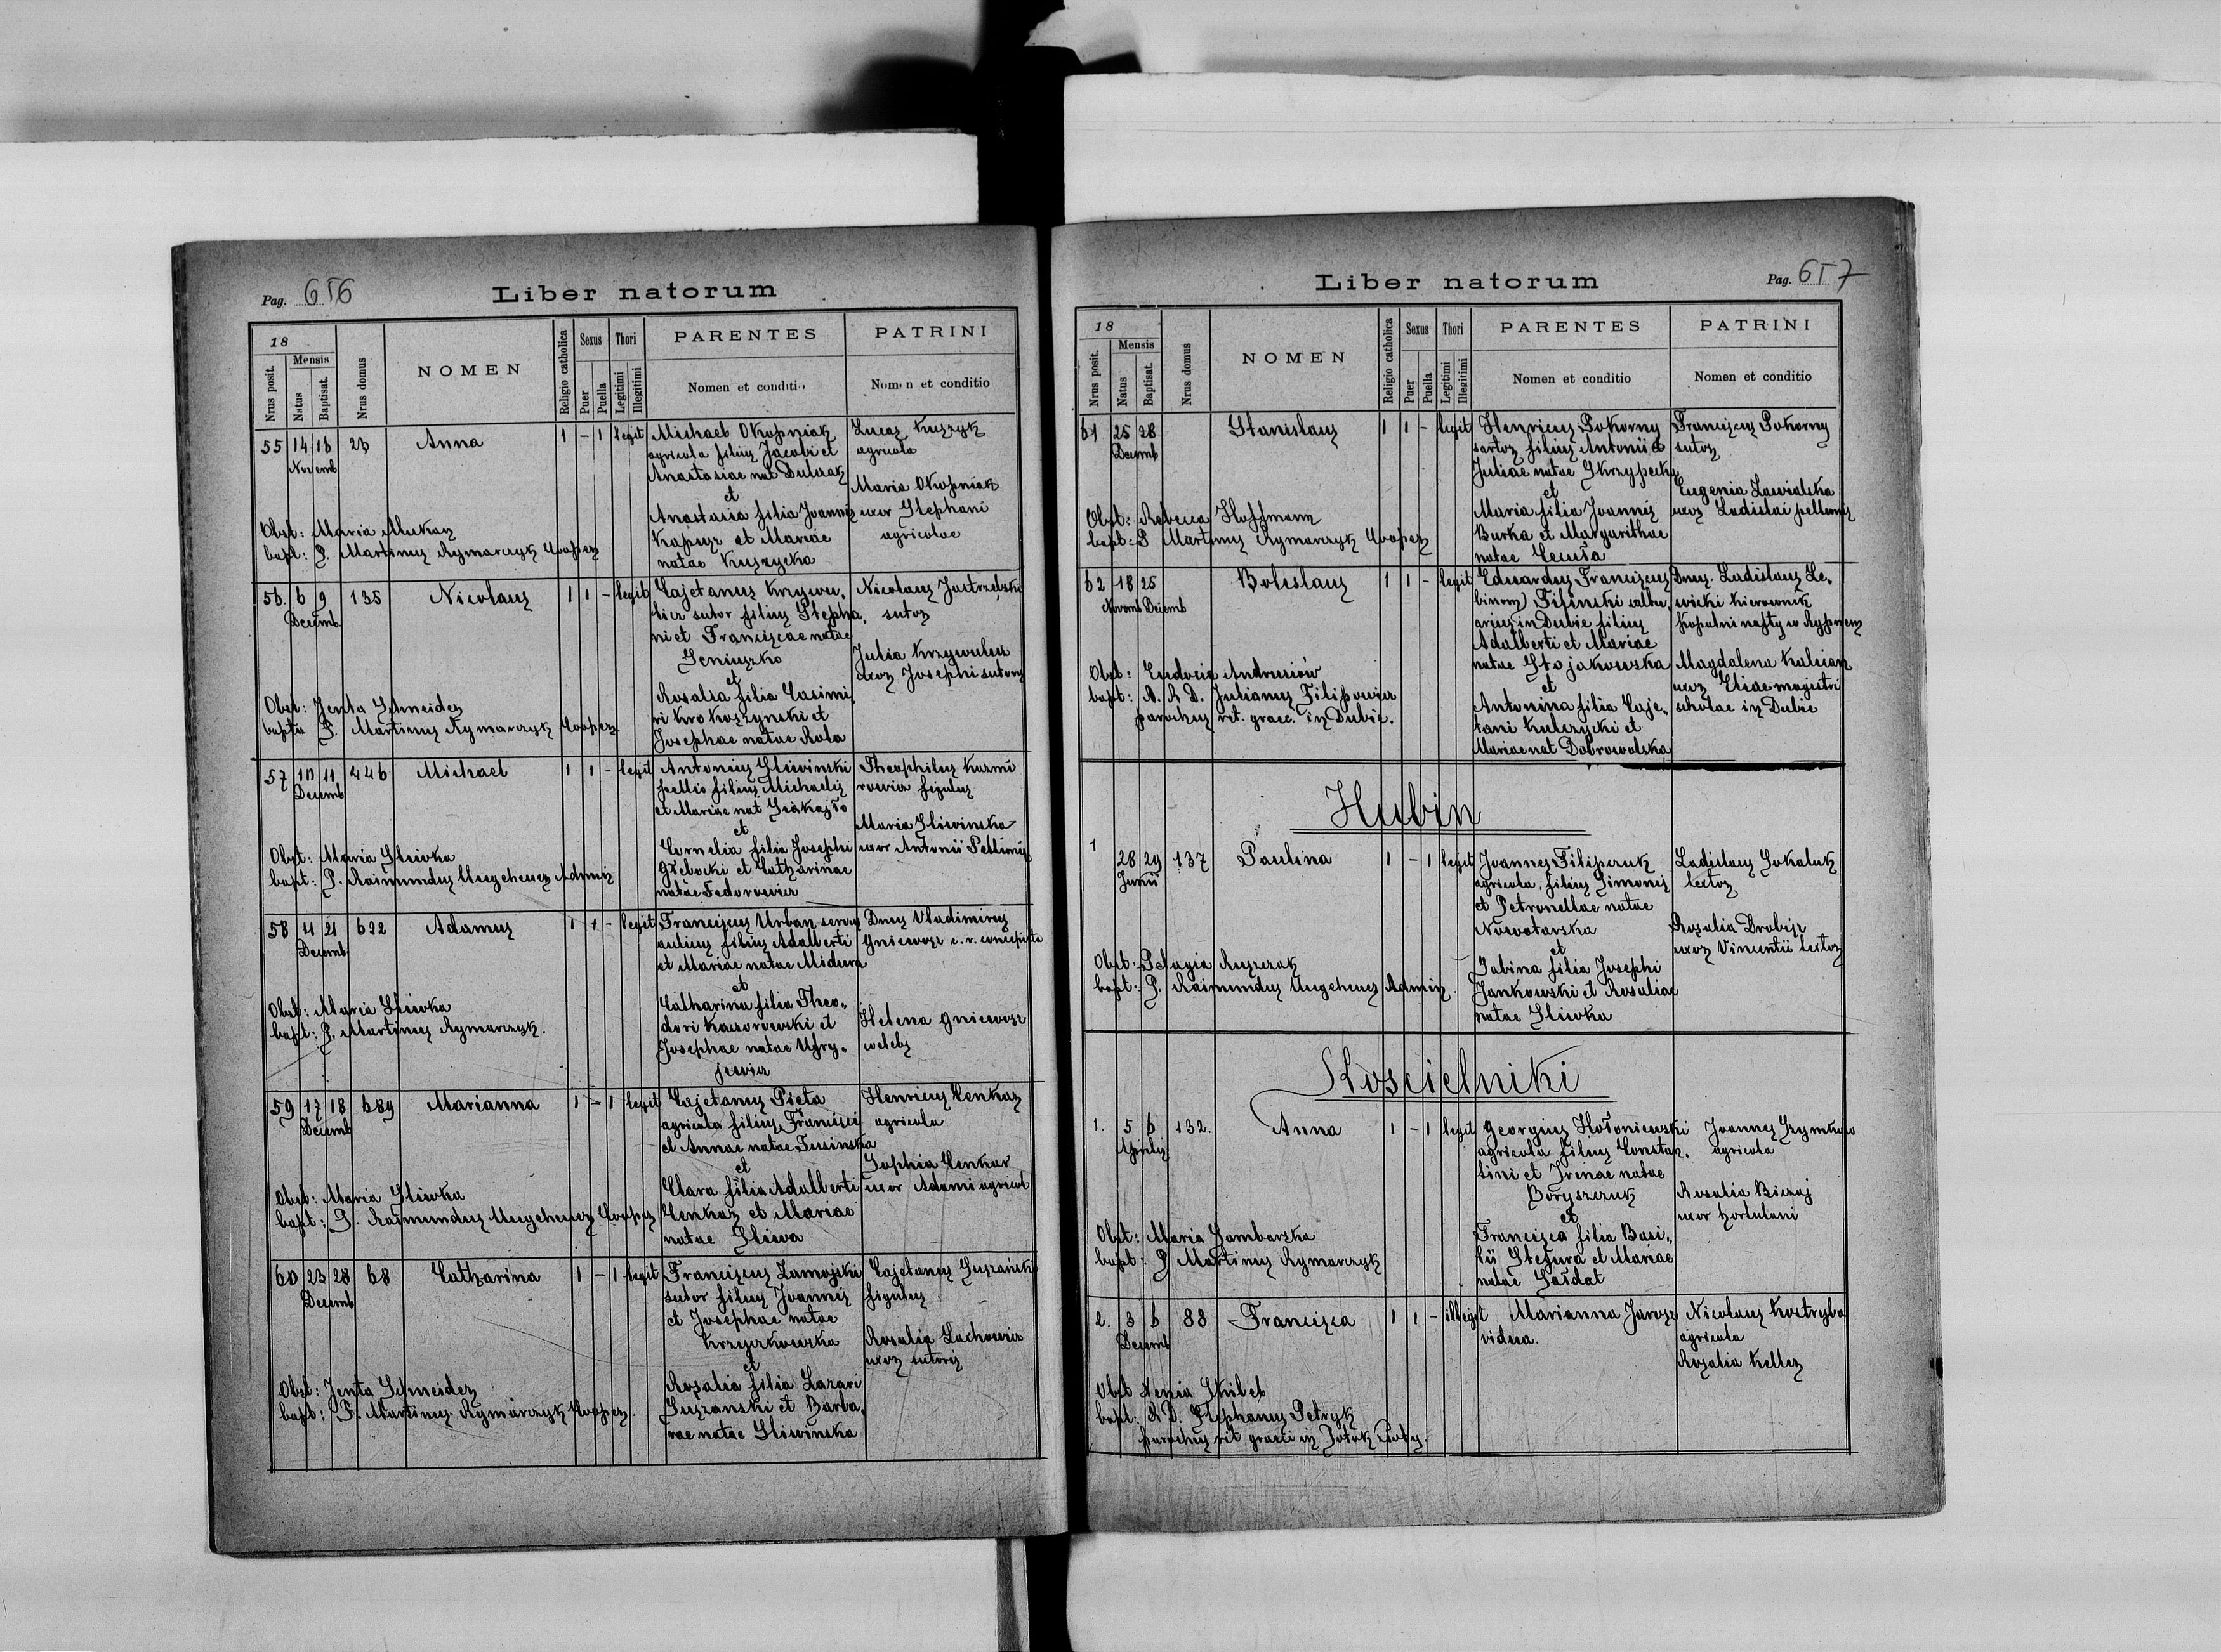 Pag. 656
Liber natorum
18
Nrus posit.
Mensis
Natus
Baptisat.
Nrus domus
NOMEN
Religio catholica
Sexus
Puer
Puella
Thori
Legitimi
Illegitimi
PARENTES
Nomen et conditio
PATRINI
Nomen et conditio
55 14 18 23 Anna 1 – 1 legit
Novemb
Michael Okopniak
agricola filius Jacobi et
Anastasiae nat Dulnak
et
Anastasia filia Joannis
Kapusz et Mariae
natae Kuszycka
Lucas Kuszyk
agricola
Maria Okopniak
uxor Stephani
agricolae
Obst: Maria Mukan
bapt: P. Martinus Rymarczyk Cooper
56. 6 9 135 Nicolaus 1 1 – legit
Decemb
Cajetanus Krzywu-
licz sutor filius Stepha-
ni et Franciscae natae
Geniuszko
et
Rosalia filia Casimi
ri Krokoszynski et
Josephae natae Rola
Nicolaus Jastrzebski
sutor
Julia Krzywulicz
uxor Josephi sutoris
Obst: Jenta Schneider
bapta P. Martinus Rymarczyk Cooper
57 10 11 446 Michael 1 1 – legit
Decemb
Antonius Sliwinski
pellio filius Michaelis
et Mariae nat
et
Cornelia filia Josephi
Grebocki et Catharinae
natae Fedorowicz
Theophilus Kuzmi
rowicz figulus
Maria Sliwinska
uxor Antonii Pellionis
Obst: Maria Sliwka
bapt: P. Raimundus Admin
58 11 21 622 Adamus 1 1 – legit
Decemb
Franciscus Urban servus
aulicus filius Adalberti
et Mariae natae Midura
et
Catharina filia Theo-
dori Kaczorowski et
Josephae natae Ufry-
jewicz
Dnus Vladimirus
Gniewosz c. r. concepista
Helena Gniewosz
coelebs
Obst: Maria Sliwka
bapt: P. Martinus Rymarczyk.
59 17 18 689 Marianna 1 – 1 legit
Decemb
Cajetanus Pieta
agricola filius Francisci
et Annae natae Tusinska
et
Clara filia Adalberti
Cenkar et Mariae
natae Sliwa
Henricus Cenkar
agricola
Sophia Cenkar
uxor Adami agricol
Obst: Maria Sliwka
bapt: P. Raimundus Cooper
60 23 28 68 Catharina 1 – 1 legit
Decemb
Franciscus Zamojski
sutor filius Joannis
et Josephae natae
Krzyzkowska
et
Rosalia filia Lazari
Suszanski et Barba-
rae natae Sliwinska
Cajetanus Suszański
figulus
Rosalia Lachowicz
uxor sutoris
Obst: Jenta Schneider
bapt: P. Martinus Rymarczyk Cooper.
Pag. 657
Liber natorum
18
Nrus posit.
Mensis
Natus
Baptisat.
Nrus domus
NOMEN
Religio catholica
Sexus
Puer
Puella
Thori
Legitimi
Illegitimi
PARENTES
Nomen et conditio
PATRINI
Nomen et conditio
61 25 28 Stanislaus 1 1 – legit
Decemb
Henricus Pokorny
sartor filius Antonii &
Juliae natae Skrzypecka
et
Maria filia Joannis
Burka et Margarithae
natae Cecuła
Franciscus Pokorny
sutor
Eugenia Zawidlska
uxor Ladislai pellionis
Obst: Rebecca Hoffmann
bapt: P Martinus Rymarczyk Cooper
62 18 25 Boleslaus 1 1 – legit
Novemb Decemb
Eduardus Franciscus
(binom) Filinski saltu-
arius in Dubie filius
Adalberti et Mariae
natae Stojakowska
et
Antonina filia Caje-
tani Kulczycki et
Mariae nat Dobrowolska
Dnus. Ladislaus Le-
wicki kierownik
kopalni nafty w
Magdalena Kulmian
uxor Eliae magistri
scholae in Dubie
Obst: Eudocia Andrusiów
bapt: A. R. D. Julianus Filipowicz
parochus rit. graec. in Dubie.
Hubin
1 28 29 137 Paulina 1 – 1 legit
Junii
Joannes Filipczuk
agricola, filius Simonis
et Petronellae natae
Nowotarska
et
Sabina filia Josephi
Jankowski et Rosaliae
natae Sliwka
Ladislaus Sokaluk
textor
Rosalia Drobisz
uxor Vincentii textor
Obst: Pelagia Ruszczak
bapt: P. Raimundus Admin.
Kościelniki
1. 5 6 132. Anna 1 – 1 legit
Aprilis
Georgius Hołoniewski
agricola filius Constan-
tini et Irenae natae
Boryszczuk
et
Francisca filia Basi-
lii Stefura et Mariae
natae Sołdat
Joannes Szymków
agricola
Rosalia Biczaj
uxor hortulani
Obst: Maria Zambarska
bapt: P Martinus Rymarczyk
2. 3 6 88 Francisca 1 1 – illegit
Decemb
Marianna Jarosz
vidua.
Nicolaus Kostryba
agricola
Rosalia Keller
Obst Xenia Skibet
bapt: R. D. Stephanus Petryk
parochus rit graeci in Potok